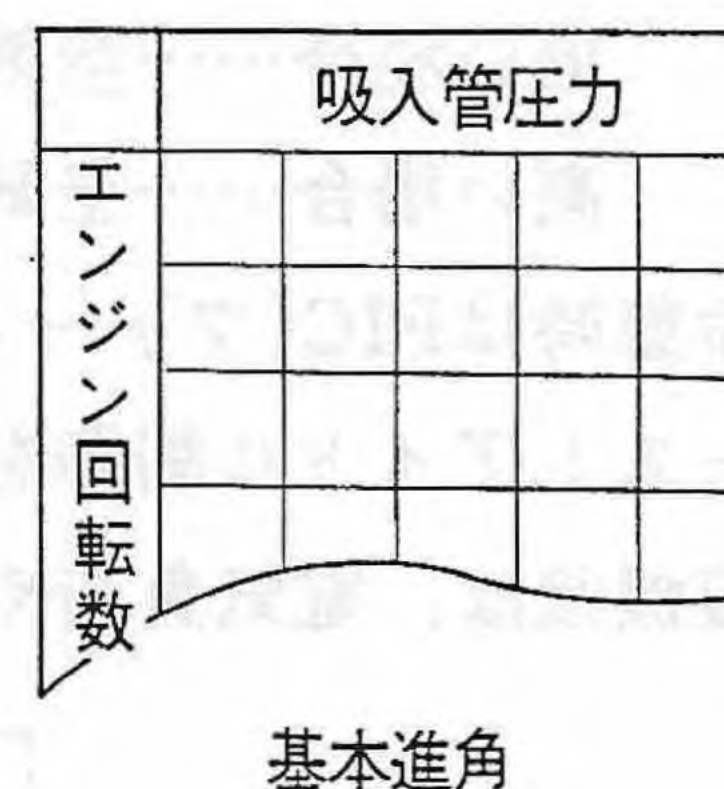 吸入管圧力
エンジン回転数
基本進角